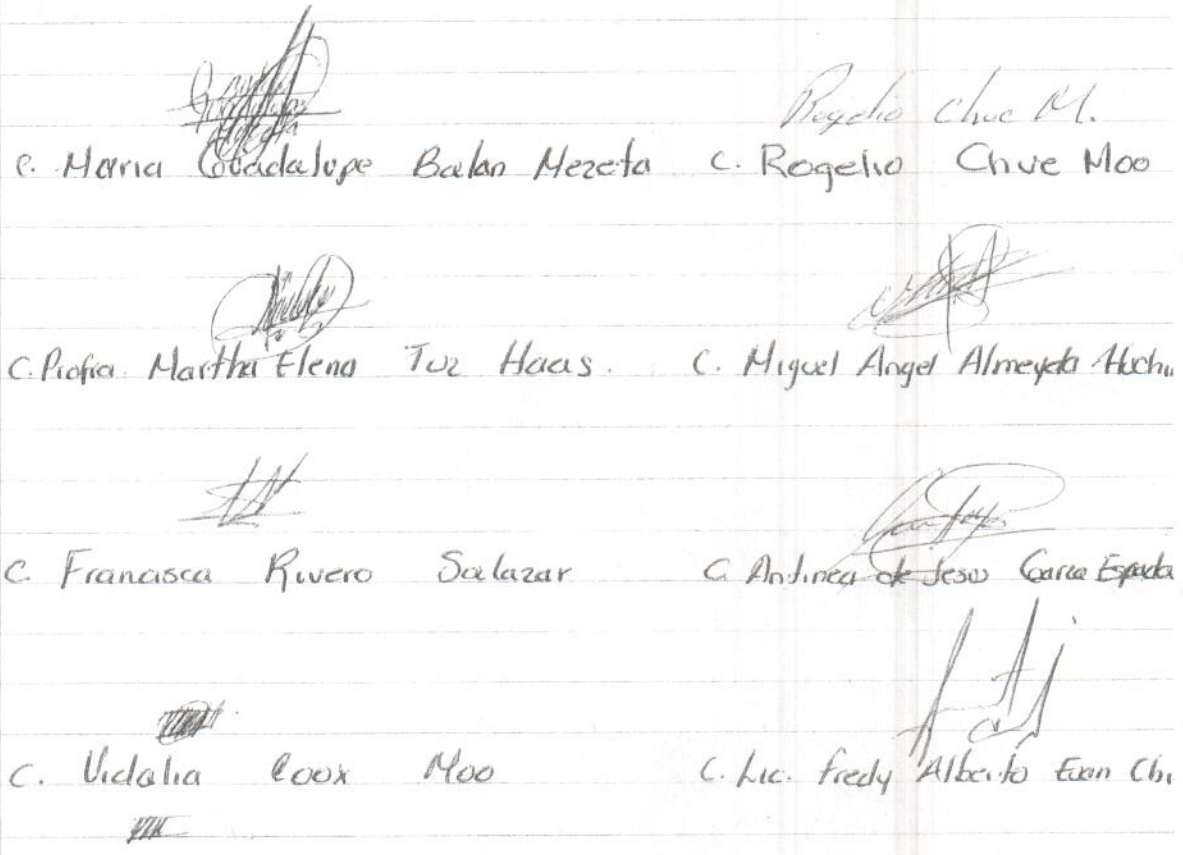 Rogelio Chuc M.
C. Maria Guadalupe Balan Mezeta C. Rogelio Chuc Moo
C. Profra Martha Elena Tuz Haas. C. Miguel Angel Almeyda
C. Francisca Rivero Salazar C. Antinea de Jesus Garcia Espada
C. Vidalia Coox Moo C. Lic. Fredy Alberto Euan Chi